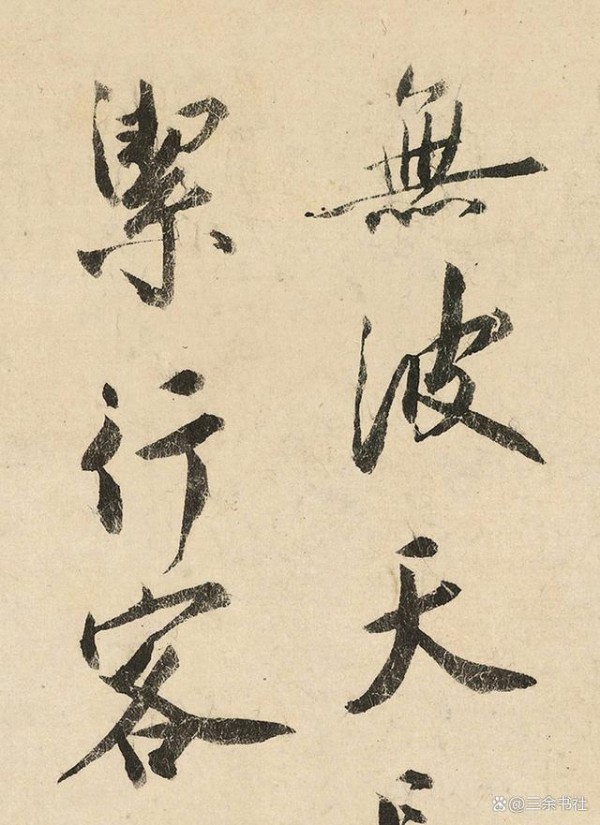 無波天
行客
@三余书社